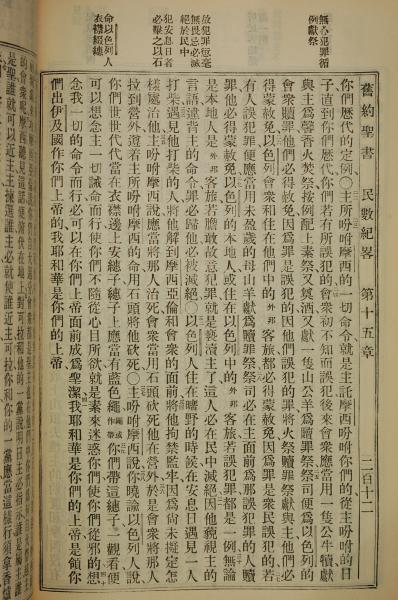 無心犯罪循
例獻祭
故犯罪毫
無畏忌必滅
絕於民中
犯安息日者
必擊之以石
命以色列人
衣襟綴繐
舊約聖書 民數紀畧 第十五章 二百十二
你們歷代的定例○主所吩咐摩西的一切命令就是主託摩西吩咐你們的從主吩咐的日
子直到你們歷代你們若有所誤犯的會衆初不知而誤犯後來會衆應當用一隻公牛犢獻
與主爲馨香火焚祭按例配上素祭又奠酒又獻一隻山公羊爲贖罪祭祭司便爲以色列的
會衆贖罪他們必得蒙赦免因爲罪是誤犯的因他們誤犯的罪將火祭贖罪祭獻與主他們必
得蒙赦免以色列會衆和住在他們中的外邦客旅都必得蒙赦免因爲罪是衆民誤犯的若
有人誤犯罪便應當用未盈歲的母山羊獻爲贖罪祭祭司必在主面前爲那誤犯罪的人贖
罪他必得蒙赦免以色列的本地人或住在以色列中的外邦客旅若誤犯罪都是一例無論
是本地人是外邦客旅若膽敢故意犯罪就是褻瀆主了這人必在民中滅絕因他藐視主的
言語違背主的命令罪必歸他必被滅絕○以色列人住在曠野的時候在安息日遇見一人
打柴遇見他打柴的人將他解到摩西亞倫和會衆的面前將他拘禁監牢因爲尙未擬定怎
樣處治他主吩咐摩西說應當將那人治死會衆當用石頭砍死他在營外於是會衆將那人
拉到營外遵着主所吩咐摩西的命用石頭將他砍死○主吩咐摩西說你曉諭以色列人說
你們世世代代當在衣襟邊上安繐子繐子上應當有藍色繩繩或作帶你們帶這繐子一觀看便
可以想念主一切誡命而行使你們不隨從心目所欲就是素來迷惑你們使你們從邪的想
念我一切的命令而行必可以在你們上帝面前成爲聖潔我耶和華是你們的上帝是領你
們出伊及國作你們上帝的我耶和華是你們的上帝